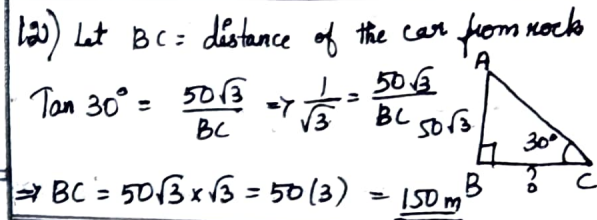 120) Let BC = distance of the car from rock
Tan 30° = 50√3/BC => 1/√3 = 50√3/BC
=> BC = 50√3 x √3 = 50(3) = 150m
A
50√3
30°
B
?
C